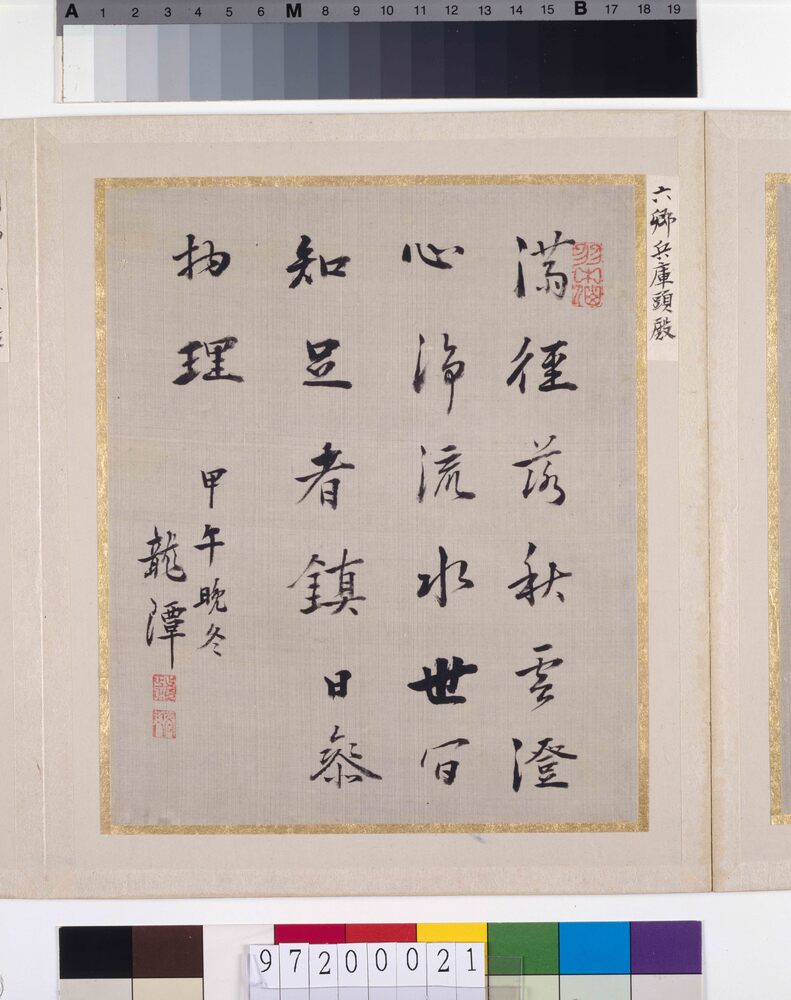 A 1 2 3 4 5 6 M 8 9 10 11 12 13 14 15 B 17 18 19
六鄉兵庫頭殿
滿徑落秋雲澄
心淨流水世間
知足者鎮日忝
物理
甲午晚冬
龍潭
97200021